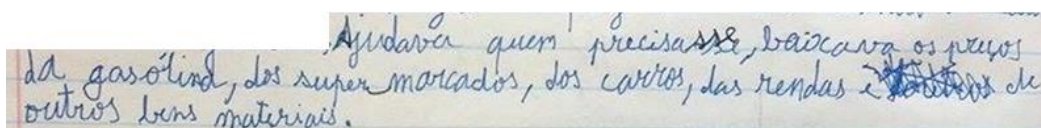 Ajudava quem precisasse, baixava os preços
da gasólina, dos super marcados, dos carros, das rendas e de
outros bens materiais.